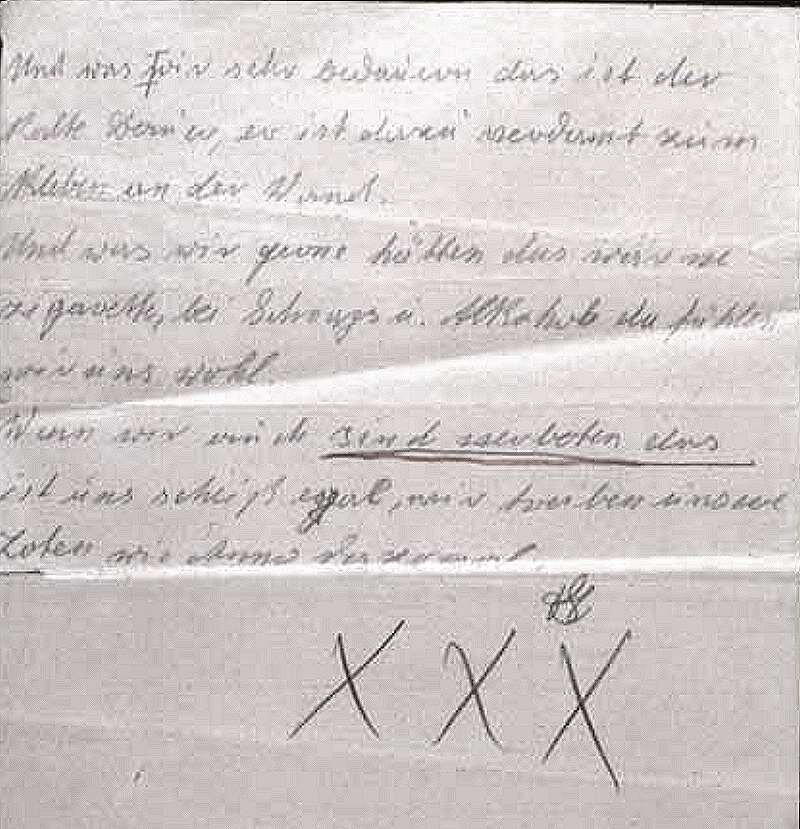 Und was wir sehr bedauern das ist der
Kalte, er ist dazu verdamt zum
Kleben an der Wand.
Und was wir gerne hätten das wär ne
zigarette, bei Schnaps u. Alkohol da fühlen
wir uns wohl.
Wenn wir auch sind verboten das
ist uns scheiß egal, wir treiben unsere
Zoten wie
X X X